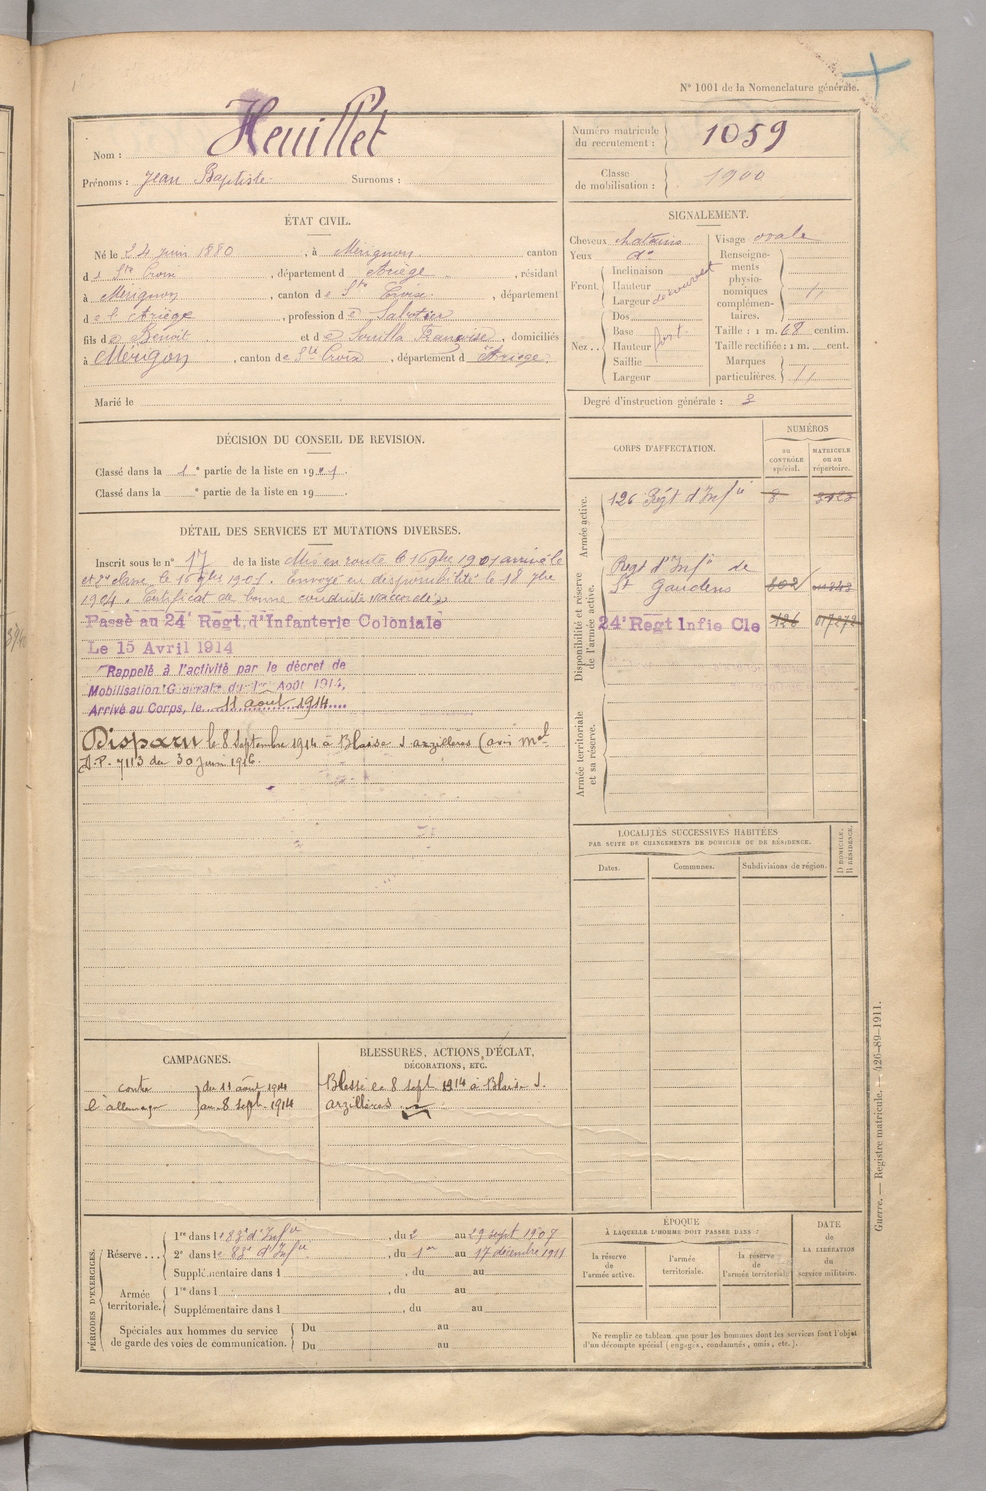 N° 1001 de la Nomenclature générale.
Nom : Heuillet
Prénoms : Jean Baptiste Surnoms :
Numéro matricule du recrutement : 1059
Classe de mobilisation : 1900
ÉTAT CIVIL.
Né le 24 juin 1880, à Mérignon canton
de Ste Croix, département d Ariège, résidant
à Mérignon, canton de Ste Croix, département
de l'Ariège, profession de Sabotier
fils de Benoit et de Souilla Françoise, domiciliés
à Mérigon, canton de Ste Croix, département d Ariege.
Marié le
SIGNALEMENT.
Cheveux chatains
Yeux do
Front. Inclinaison
Hauteur
Largeur découvert
Nez.. Dos
Base
Hauteur fort.
Saillie
Largeur
Visage ovale
Renseignements physionomiques complémentaires. //
Taille : 1 m. 68 centim.
Taille rectifiée : 1 m. cent.
Marques particulières. //
Degré d'instruction générale : 3
DÉCISION DU CONSEIL DE REVISION.
Classé dans la 1e partie de la liste en 1901.
Classé dans la e partie de la liste en 19
DÉTAIL DES SERVICES ET MUTATIONS DIVERSES.
Inscrit sous le n° 17 de la liste Mis en route le 16 9bre 1901 arrivé le
et 2e classe, le 16 9bre 1901. Envoyé en disponibilité le 18 7bre
1904. Certificat de bonne conduite accordé
Passé au 24e Regt d'Infanterie Coloniale
Le 15 Avril 1914
Rappelé à l'activité par le décret de
Mobilisation Générale du 1er Août 1914,
Arrivé au Corps, le 11 août 1914
Disparu le 8 Septembre 1914 à Blaise s. arzillères (avis mel
D.P. 7113 du 30 juin 1916.
CORPS D'AFFECTATION.
NUMÉROS
au CONTRÔLE spécial.
MATRICULE ou au répertoire.
Armée active.
126 Régt d'Infie 8
Disponibilité et réserve de l'armée active.
Regt d'Infie de
St Gaudens 802
24e Regt Infie Cle 126 017272
Armée territoriale et sa réserve.
LOCALITÉS SUCCESSIVES HABITÉES
PAR SUITE DE CHANGEMENTS DE DOMICILE OU DE RÉSIDENCE.
Dates.
Communes.
Subdivisions de région.
D DOMICILE.
R RÉSIDENCE.
CAMPAGNES.
contre l'allemagne
du 11 août 1914
au 8 sept. 1914
BLESSURES, ACTIONS D'ÉCLAT,
DÉCORATIONS, ETC.
Blessé le 8 sept 1914 à Blaise s.
arzillères
PÉRIODES D'EXERCICES.
Réserve ...
1re dans le 83e d'Infie, du 2 au 29 sept 1907
2e dans le 83e d'Infie, du 1er au 17 décembre 1911
Supplémentaire dans l , du au
Armée territoriale.
1re dans l , du au
Supplémentaire dans l , du au
Spéciales aux hommes du service
de garde des voies de communication.
Du au
Du au
ÉPOQUE
À LAQUELLE L'HOMME DOIT PASSER DANS :
la réserve de l'armée active.
l'armée territoriale.
la réserve de l'armée territoriale
DATE
DE
LA LIBÉRATION
du
service militaire.
Ne remplir ce tableau que pour les hommes dont les services font l'objet
d'un décompte spécial (engagés, condamnés, omis, etc.).
Guerre. — Registre matricule. — 426-89-1911.